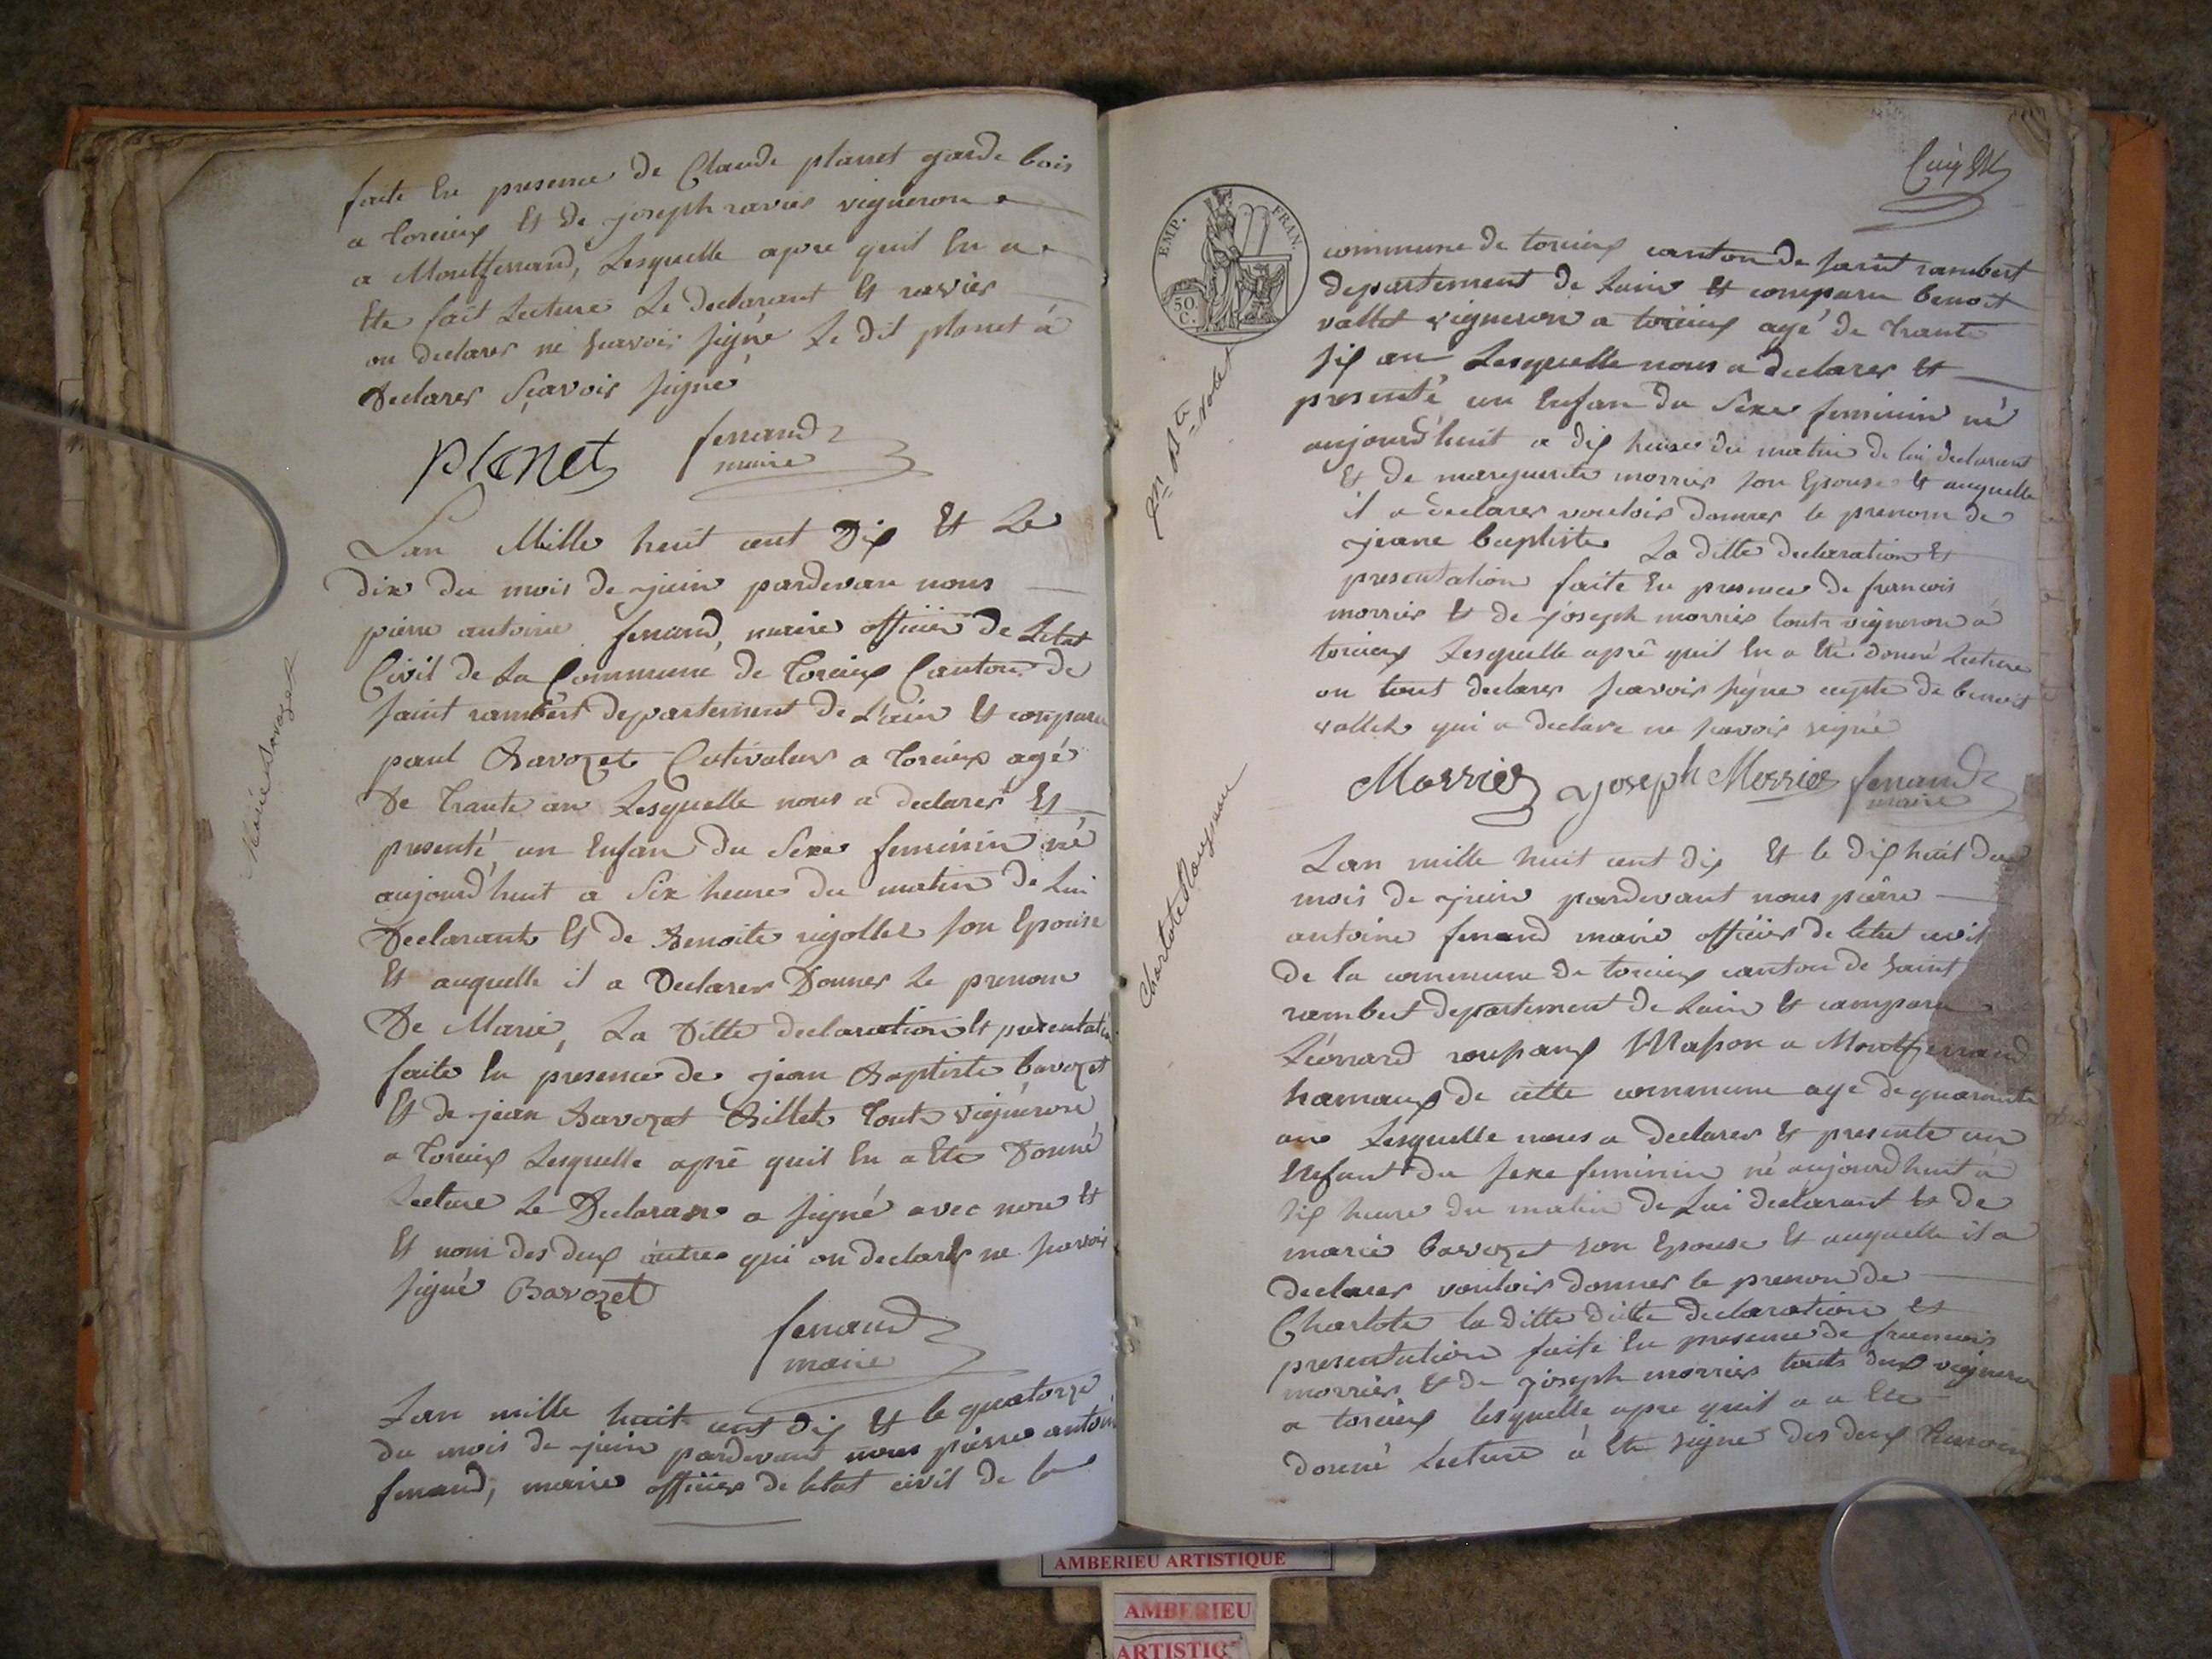 faite En presence de Claude planet garde bois
a torcieux Et de joseph ravier vigneron
a Montferrand, Lesquelle apre quil En a
Ete fait Lecture Le declarant Et ravier
on declarer ne scavoir signé Le dit planet á
Declarer Sçavoir signé
planet
ferrand
maire
Marie Bavozet
Lan Mille huit cent Dix Et Le
dix du mois de juin pardevan nous
pierre antoine ferrand, maire officier de Letat
Civil de La Commune de Torcieux Canton de
saint rambert departement de L'ain Et comparu
paul Bavozet Cutivateur a Torcieux agé
De Trante an Lesquelle nous a declarer Et
presenté un Enfan du Sexe feminin né
aujourd'huit a Six heure du matin de Lui
Declarant Et de Benoite rigollet son Epouse
Et auquelle il a Declarer Donner Le prenom
De Marie, La Ditte declaration Et presentation
faite En presence de jean Baptiste bavozet
Et de jean Bavozet Billet tout vigneron
a Torcieux Lesquelle aprè quil En a Ete Donné
Lecture Le Declaran a signé avec nou Et
Et nom des deux autre qui on declarer ne scavoir
signé Bavozet
ferrand
maire
Lan mille huit cent dix Et le quatorze
du mois de juin pardevant nous pierre antoine
ferrand, maire officier de letat civil de la
EMP. FRAN.
50 C.
jn Bte vallet
commune de torcieux canton de saint rambert
departement de Lain Et comparu benoit
vallet vigneron a torcieux agé de trante
six an Lesquelle nous a declarer Et
presenté un Enfan du Sexe feminin né
aujourd'huit a dix heure du matin de lui declarant
Et de marguerite morrier son Epouse Et auquelle
il a declarer vouloir donner le prenom de
jeane baptiste La ditte declaration Et
presentation faite En presence de francois
morrier Et de joseph morrier tout vigneron á
torcieux Lesquelle aprê quil En a Eté donné Lecture
on tout declarer scavoir signe de benoit
vallet qui a declare ne scavoir signé
Morrier joseph Morrier ferrand
maire
Charlote
Lan mille huit cent dix Et le dix huit du
mois de juin pardevant nous pierre
antoine ferrand maire officier de letat civil
de la commune de torcieux canton de saint
rambert departement de Lain Et comparu
Léonard Masson a Montferrand
hamaux de cette commune age de quarante
ans Lesquelle nous a declarer Et presente un
Enfant du sexe feminin né aujourdhuit á
six heure du matin de Lui declarant Et de
marie bavozet son Epouse Et auquelle il a
declarer vouloir donner le prenon de
Charlote la ditte ditte declaration Et
presentation faite En presence de francois
morrier Et de joseph morrier touts deux vigneron
a torcieux lesquelle apre quil a a Ete
donné Lecture á Ete signé des deux temoin
AMBERIEU ARTISTIQUE
AMBERIEU
ARTISTIQ